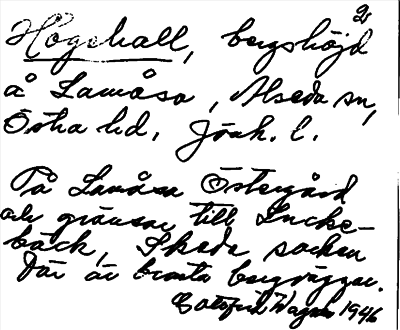 2
Högehall, bergshöjd
å Lamåsa, Alseda sn,
Östra hd, Jönk. l.
På Lamåsa Östergård
och gränsar till Lucke-
bäck, Skeda socken
Där är branta bergväggar.
Wagner 1946